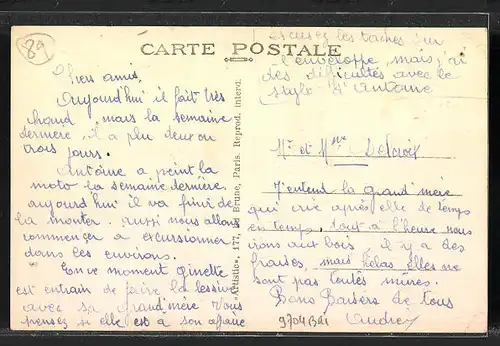 89
CARTE POSTALE
Excusez les taches sur
l'enveloppe, mais j'ai
des difficultés avec le
stylo d'Antoine
Chers amis,
Aujourd'hui il fait très
chaud, mais la semaine
dernière, il a plu deux ou
trois jours.
Antoine a peint la
moto la semaine dernière
aujourd'hui il va finir de
la monter. aussi nous allons
commencer à excursionner
dans les environs.
En ce moment ginette
est entrain de faire la lessive
avec sa grand'mère Vous
pensez si elle est à son affaire
"Artistic", 177, Le Brune, Paris. Reprod. interd.
Mr et Mme Delcroix
J'entend la grand'mère
qui crie après elle de temps
en temps, tout à l'heure nous
irons aux bois il y a des
fraises, mais hélas elles ne
sont pas toutes mûres.
Bons Baisers de tous
Audrey
9704Bai